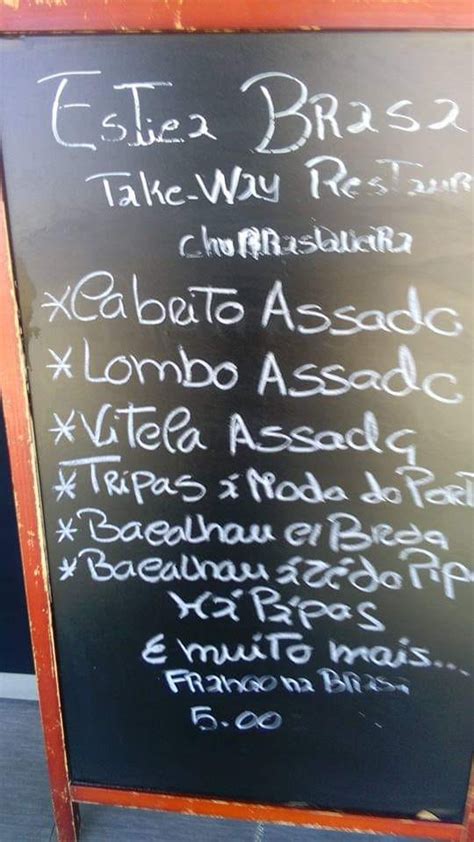 Estica Brasa
Take-Way Restaur
churrasqueira
*Cabrito Assado
*Lombo Assado
*Vitela Assada
*Tripas á Moda do Port
*Bacalhau c/ Broa
*Bacalhau á Zé do Pip
Há Pipas
E muito mais...
Frango na Brasa
5.00